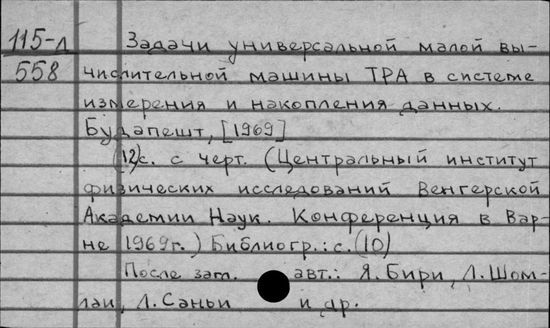 115-л Задачи универсальной малой вы-
558 числительной машины ТРА в системе
измерения и накопления данных.
Будапешт, [1969]
(12)с. с черт. (Центральный институт
физических исследований Венгерской
Академии Наук. Конференция в Вар-
не 1969г.) Библиогр.: с. (10)
После заг. авт.: Я. Бири, Л. Шом-
лаи, Л. Саньи и др.